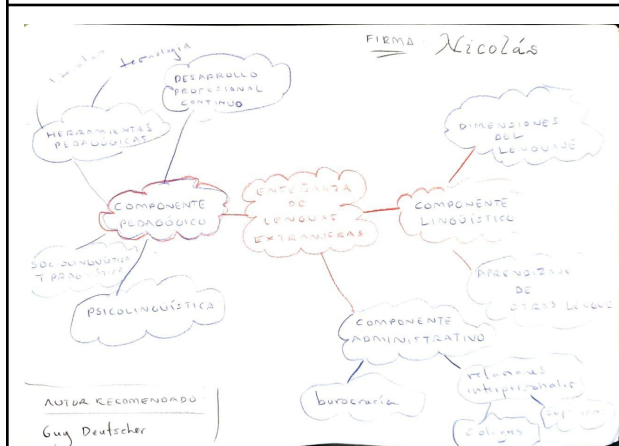 FIRMA: Nicolás
tecnología
DESARROLLO
PROFESIONAL
CONTINUO
HERRAMIENTAS
PEDAGÓGICAS
DIMENSIONES
DEL
LENGUAJE
ENSEÑANZA
DE
LENGUAS
EXTRANJERAS
COMPONENTE
PEDAGÓGICO
COMPONENTE
LINGÜÍSTICO
SOCIOLINGÜÍSTICA
Y PRAGMÁTICA
PSICOLINGUÍSTICA
APRENDIZAJE
DE
OTRAS LENGUAS
COMPONENTE
ADMINISTRATIVO
burocracia
relaciones
interpersonales
colegas
AUTOR RECOMENDADO
Guy Deutscher